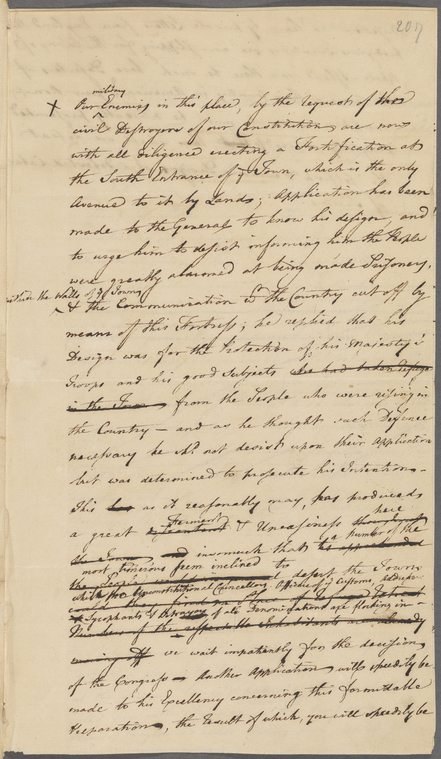 207
military
Our Enemies in this place, by the request of those
civil Destroyers of our Constitution, are now
with all diligence erecting a Fortification at
the South Entrance of ye Town, which is the only
Avenue to it by Land; Application has been
made to the General to know his design, and
to urge him to desist informing him the People
were greatly alarmed at being made Prisoners,
within the Walls of ye Town
& the Communication wth the Country cut off by
means of this Fortress; he replied that his
Design was for the Protection of his Majesty's
Troops and his good Subjects who had taken refuge
in the Town from the People who were rising in
the Country — and as he thought such Defence
necessary he shd not desist upon their Application
but was determined to prosecute his Intention —
This as it reasonably may, has produced here
a great Ferment & Uneasiness
the Town and insomuch that a number of the
most timorous seem inclined to
desert the Town
which the unconstitutional Councellors, Officers of ye Customs,
Sycophants & of all Denominations are flocking in —
of the respectable Inhabitants are already
moving off we wait impatiently for the decision
of the Congress — Another Application will speedily be
made to his Excellency concerning this formidable
Preparation, the Result of which, you will speedily be